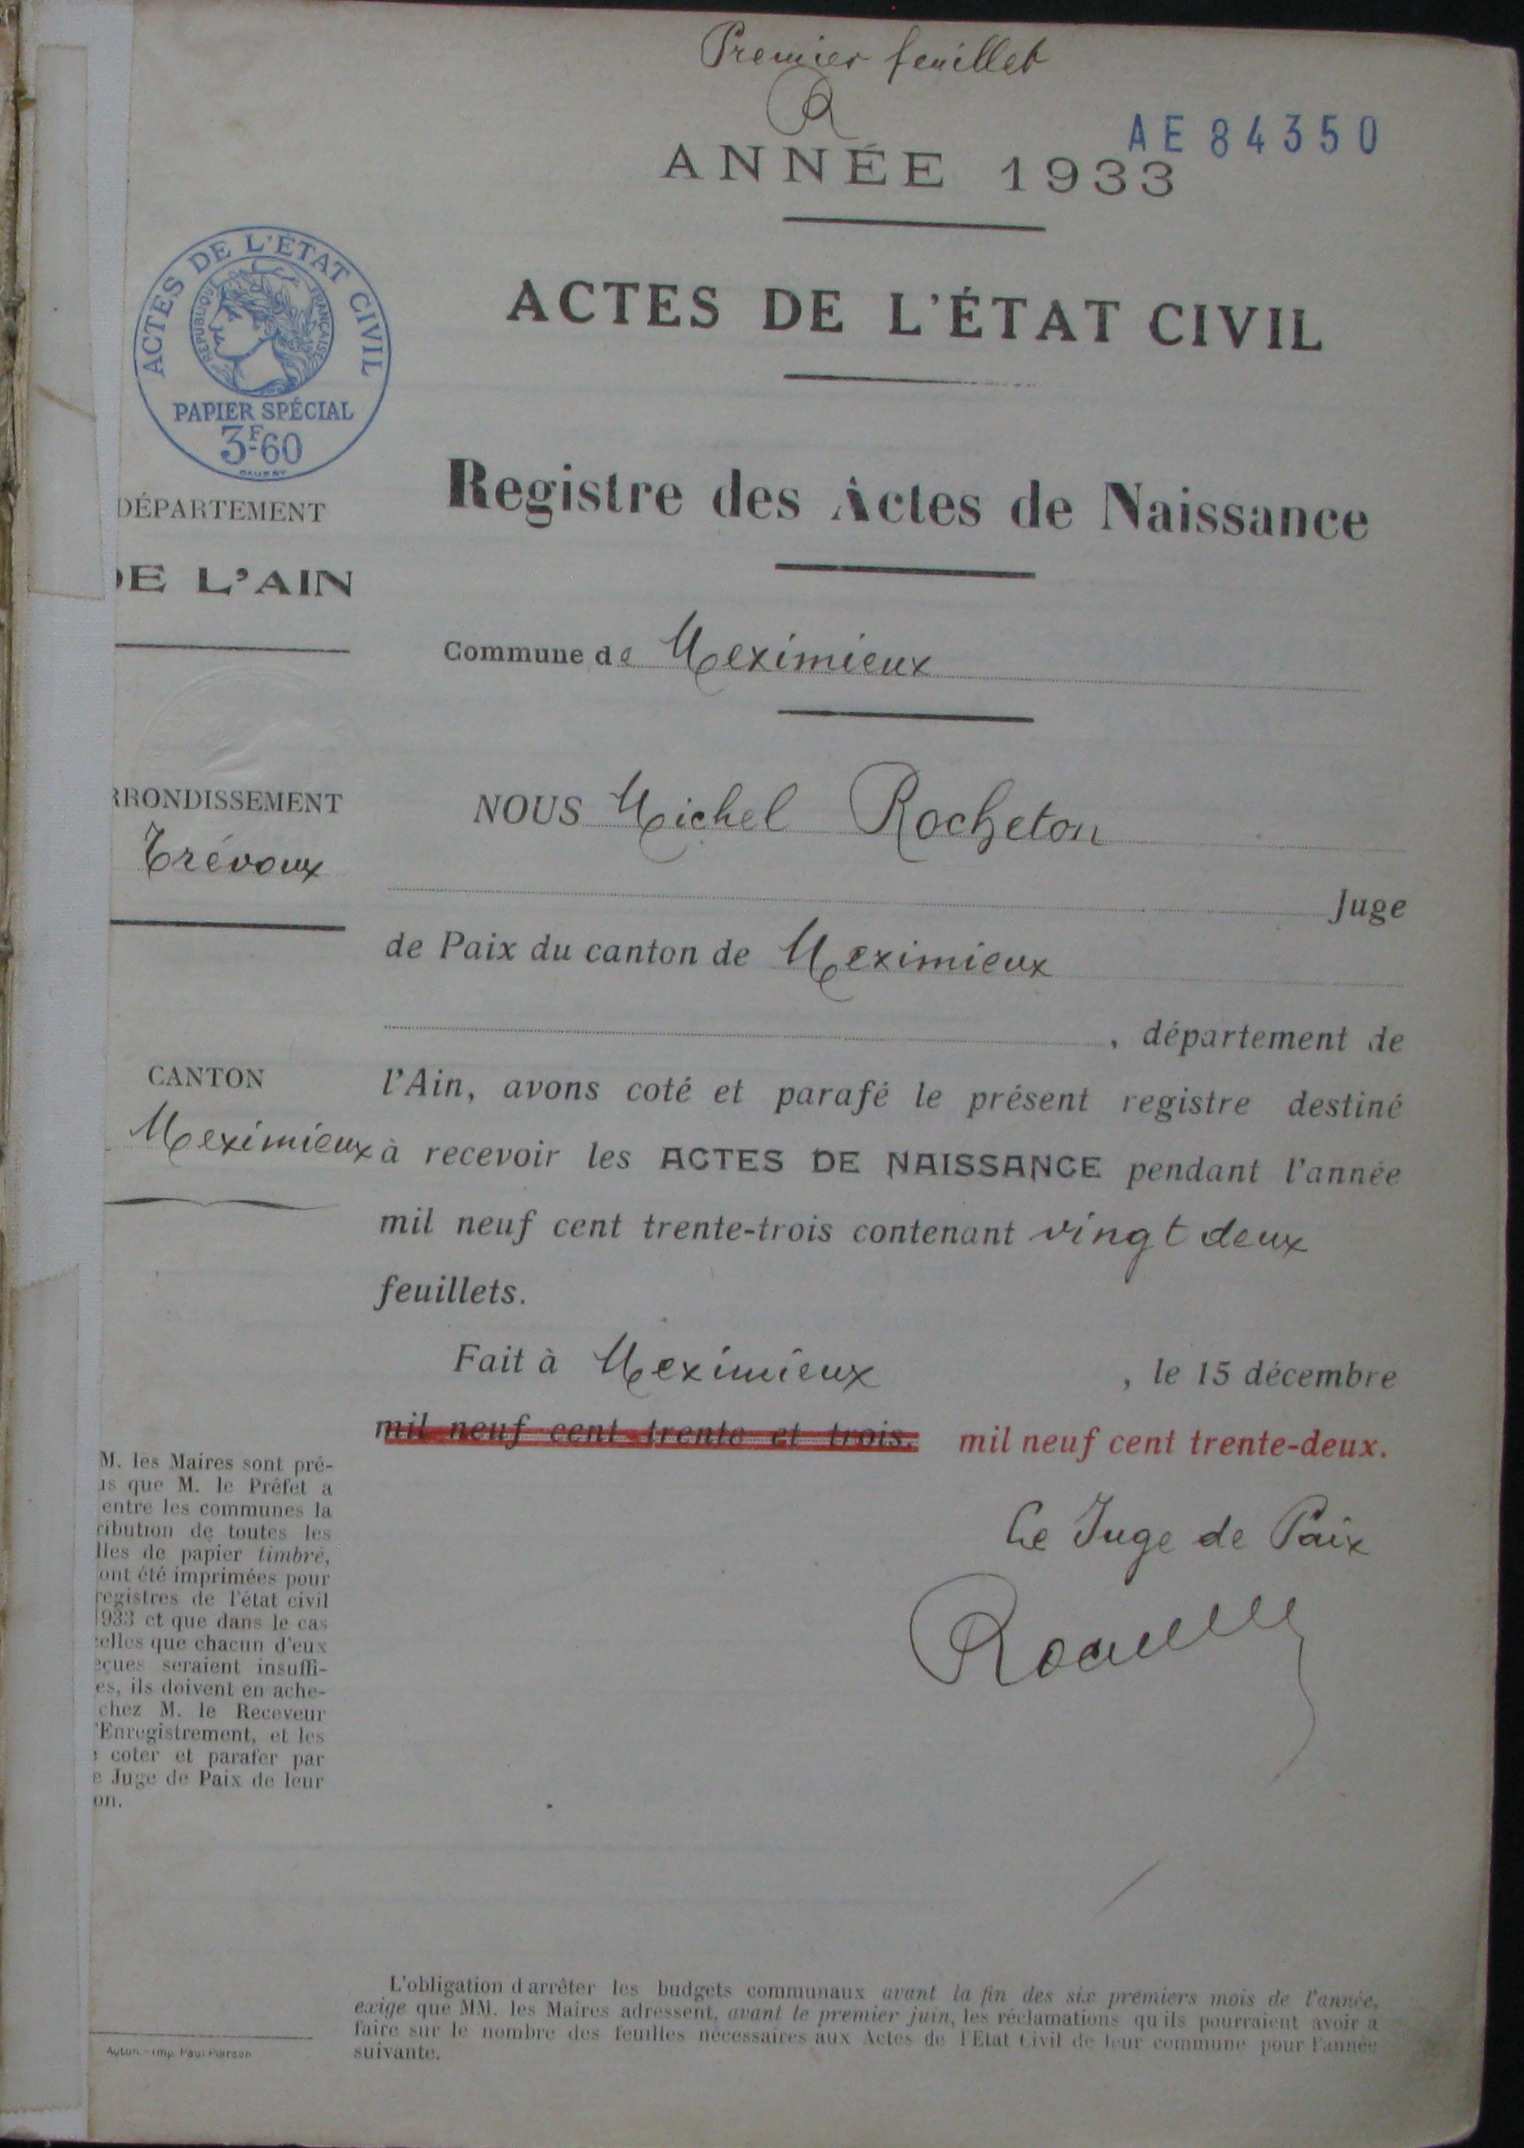 Premier feuillet
AE 84350
ANNÉE 1933
ACTES DE L'ÉTAT CIVIL
RÉPUBLIQUE FRANÇAISE
PAPIER SPÉCIAL
3F-60
ACTES DE L'ÉTAT CIVIL
DÉPARTEMENT
DE L'AIN
RRONDISSEMENT
Trévoux
CANTON
Meximieux
M. les Maires sont pré-
us que M. le Préfet a
entre les communes la
ribution de toutes les
lles de papier timbré,
ont été imprimées pour
registres de l'état civil
1933 et que dans le cas
celles que chacun d'eux
eçues seraient insuffi-
es, ils doivent en ache-
chez M. le Receveur
l'Enregistrement, et les
coter et parafer par
e Juge de Paix de leur
on.
Autun. - Imp. Paul Marcon
Registre des Actes de Naissance
Commune de Meximieux
NOUS Michel Rocheton
Juge
de Paix du canton de Meximieux
, département de
l'Ain, avons coté et parafé le présent registre destiné
à recevoir les ACTES DE NAISSANCE pendant l'année
mil neuf cent trente-trois contenant vingt deux
feuillets.
Fait à Meximieux , le 15 décembre
mil neuf cent trente et trois. mil neuf cent trente-deux.
Le Juge de Paix
L'obligation d'arrêter les budgets communaux avant la fin des six premiers mois de l'année,
exige que MM. les Maires adressent, avant le premier juin, les réclamations qu'ils pourraient avoir à
faire sur le nombre des feuilles nécessaires aux Actes de l'Etat Civil de leur commune pour l'année
suivante.